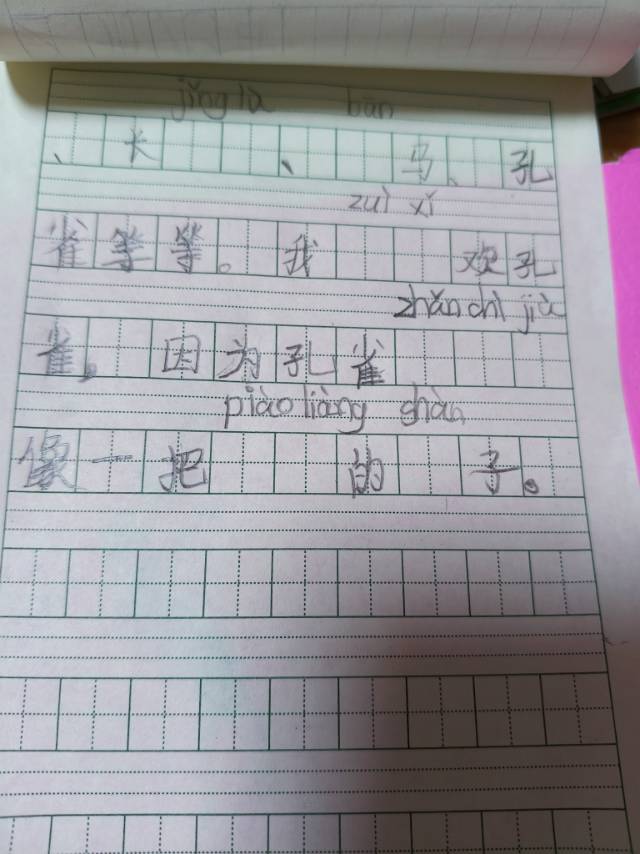 jǐng lù bān
、长、马、孔
zuì xǐ
雀等等。我欢孔
zhǎn chì jiù
雀,因为孔雀
piào liàng shàn
像一把的子。